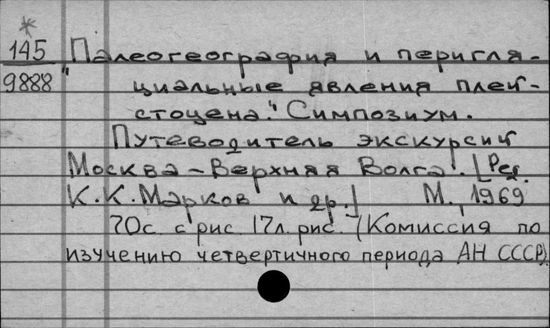 *
145
9888
"Палеогеография и перигля-
циальные явления плей-
стоцена". Симпозиум.
Путеводитель экскурсий
Москва - Верхняя Волга. [Ред.
К.К. Марков и др.] М., 1969
70с. с рис. 17л. рис. (Комиссия по
изучению четвертичного периода АН СССР).